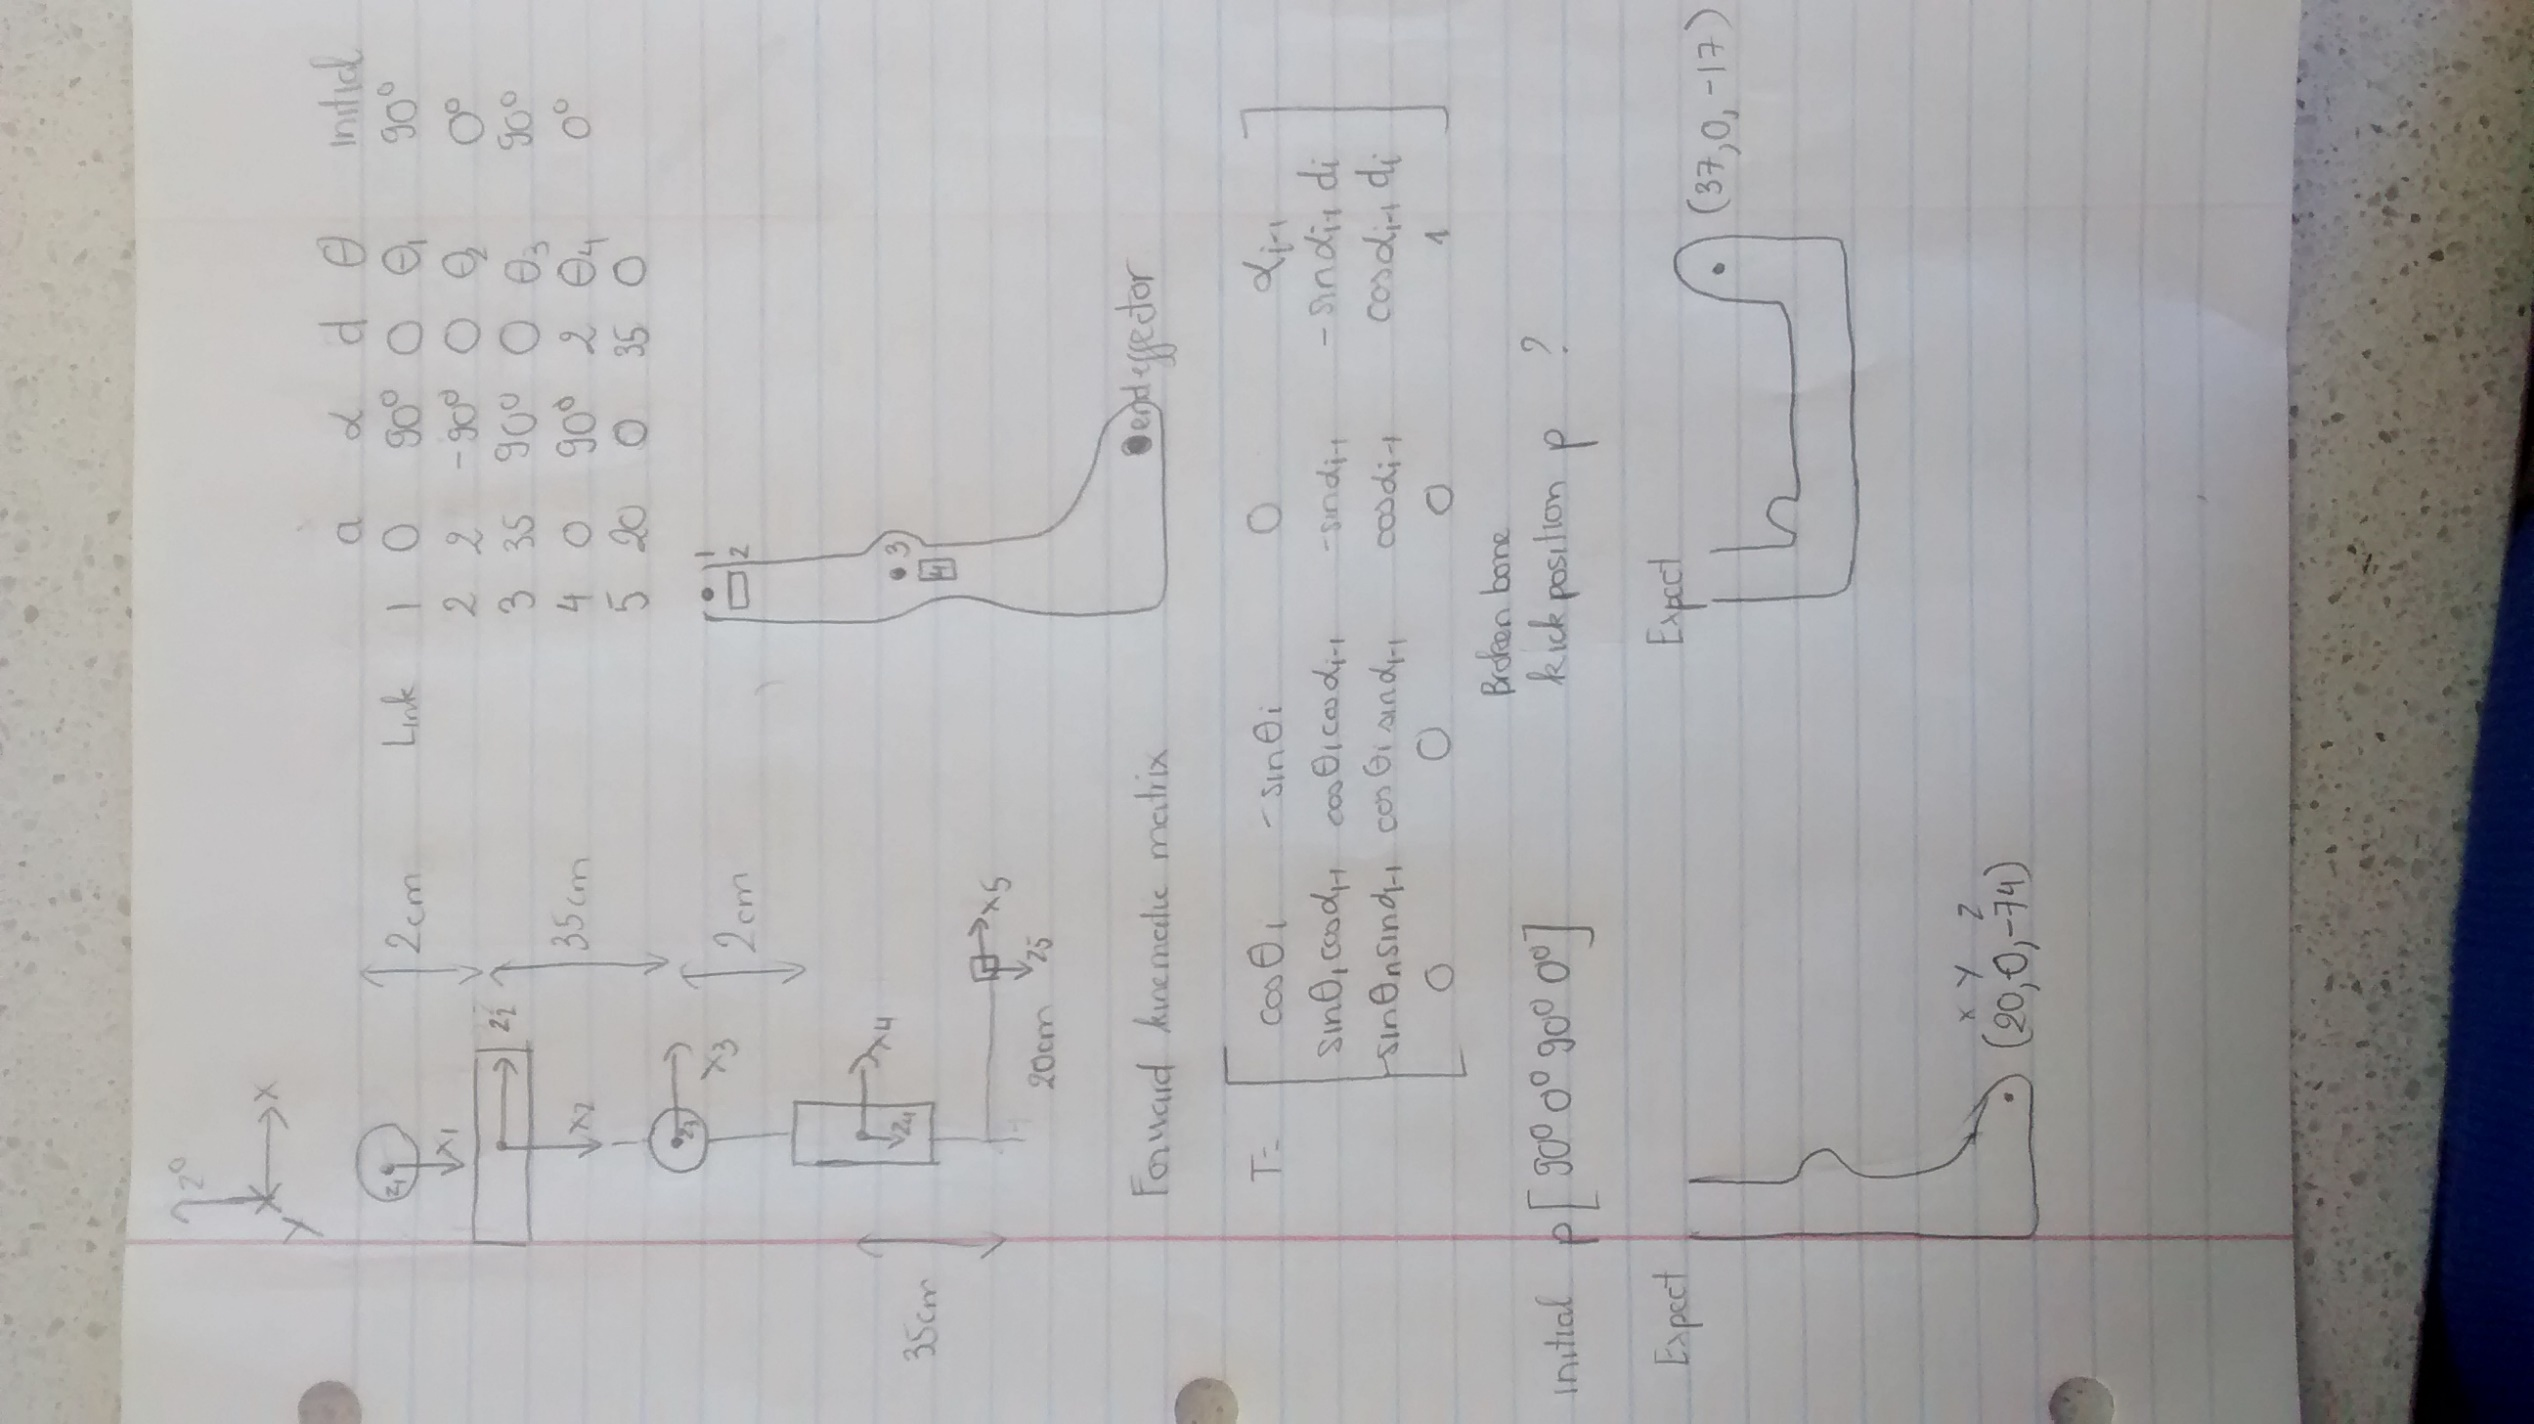 Z0
Y X
Z1
X1
2cm
Z2
X2
35cm
Z3
X3
2cm
Z4
X4
35cm
20cm
X5
Z5
a α d θ Initial
Link 1 0 90° 0 θ1 90°
2 2 -90° 0 θ2 0°
3 35 90° 0 θ3 90°
4 0 90° 2 θ4 0°
5 20 0 35 0
1
2
3
4
end effector
Forward kinematic matrix
T= cosθi -sinθi 0 αi-1
sinθi cosαi-1 cosθi cosαi-1 -sinαi-1 -sinαi-1 di
sinθn sinαi-1 cosθi sinαi-1 cosαi-1 cosαi-1 di
0 0 0 1
Initial p [90° 0° 90° 0°]
Broken bone
kick position p ?
Expect
x y z
(20,0,-74)
Expect
(37,0,-17)